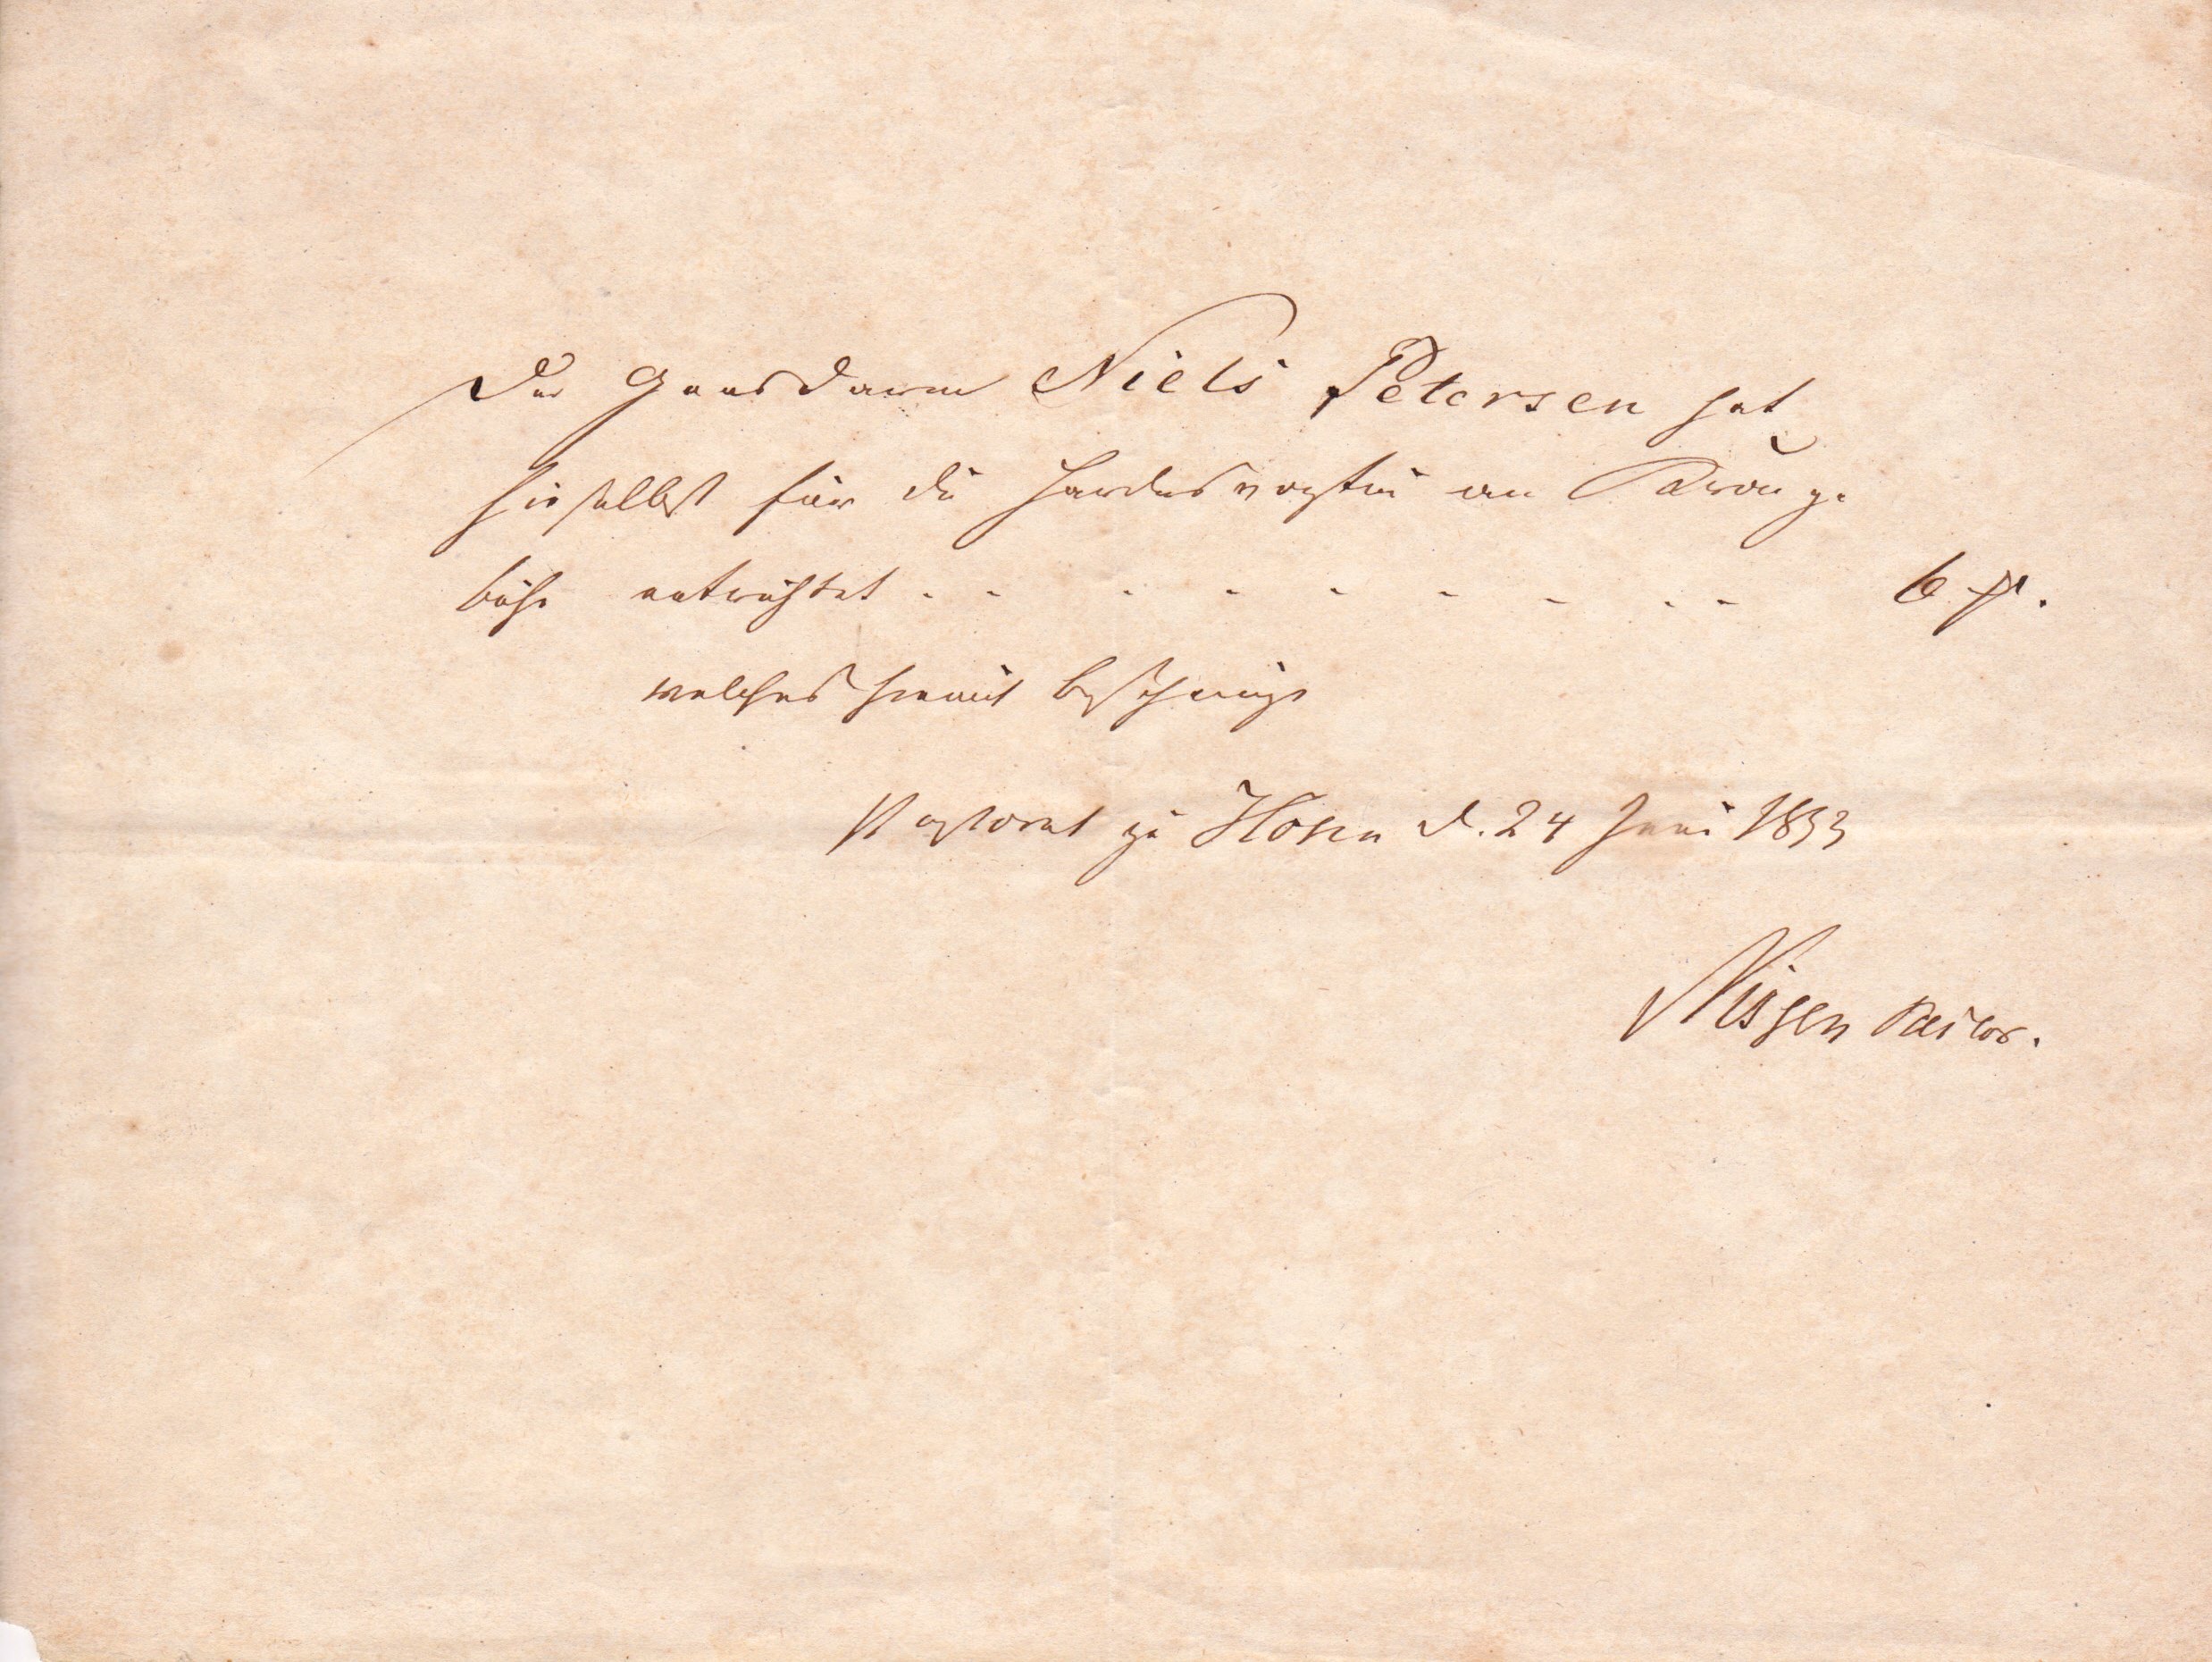 Der Gensdarm Niels Petersen hat
hieselbst für die Hardesvogtei an Brüchge
bühr entrichtet . - - - - - - . -
welches hiemit bescheinigt
Pastorat zu d. 24 Juni 1853
Nissen Pastor.